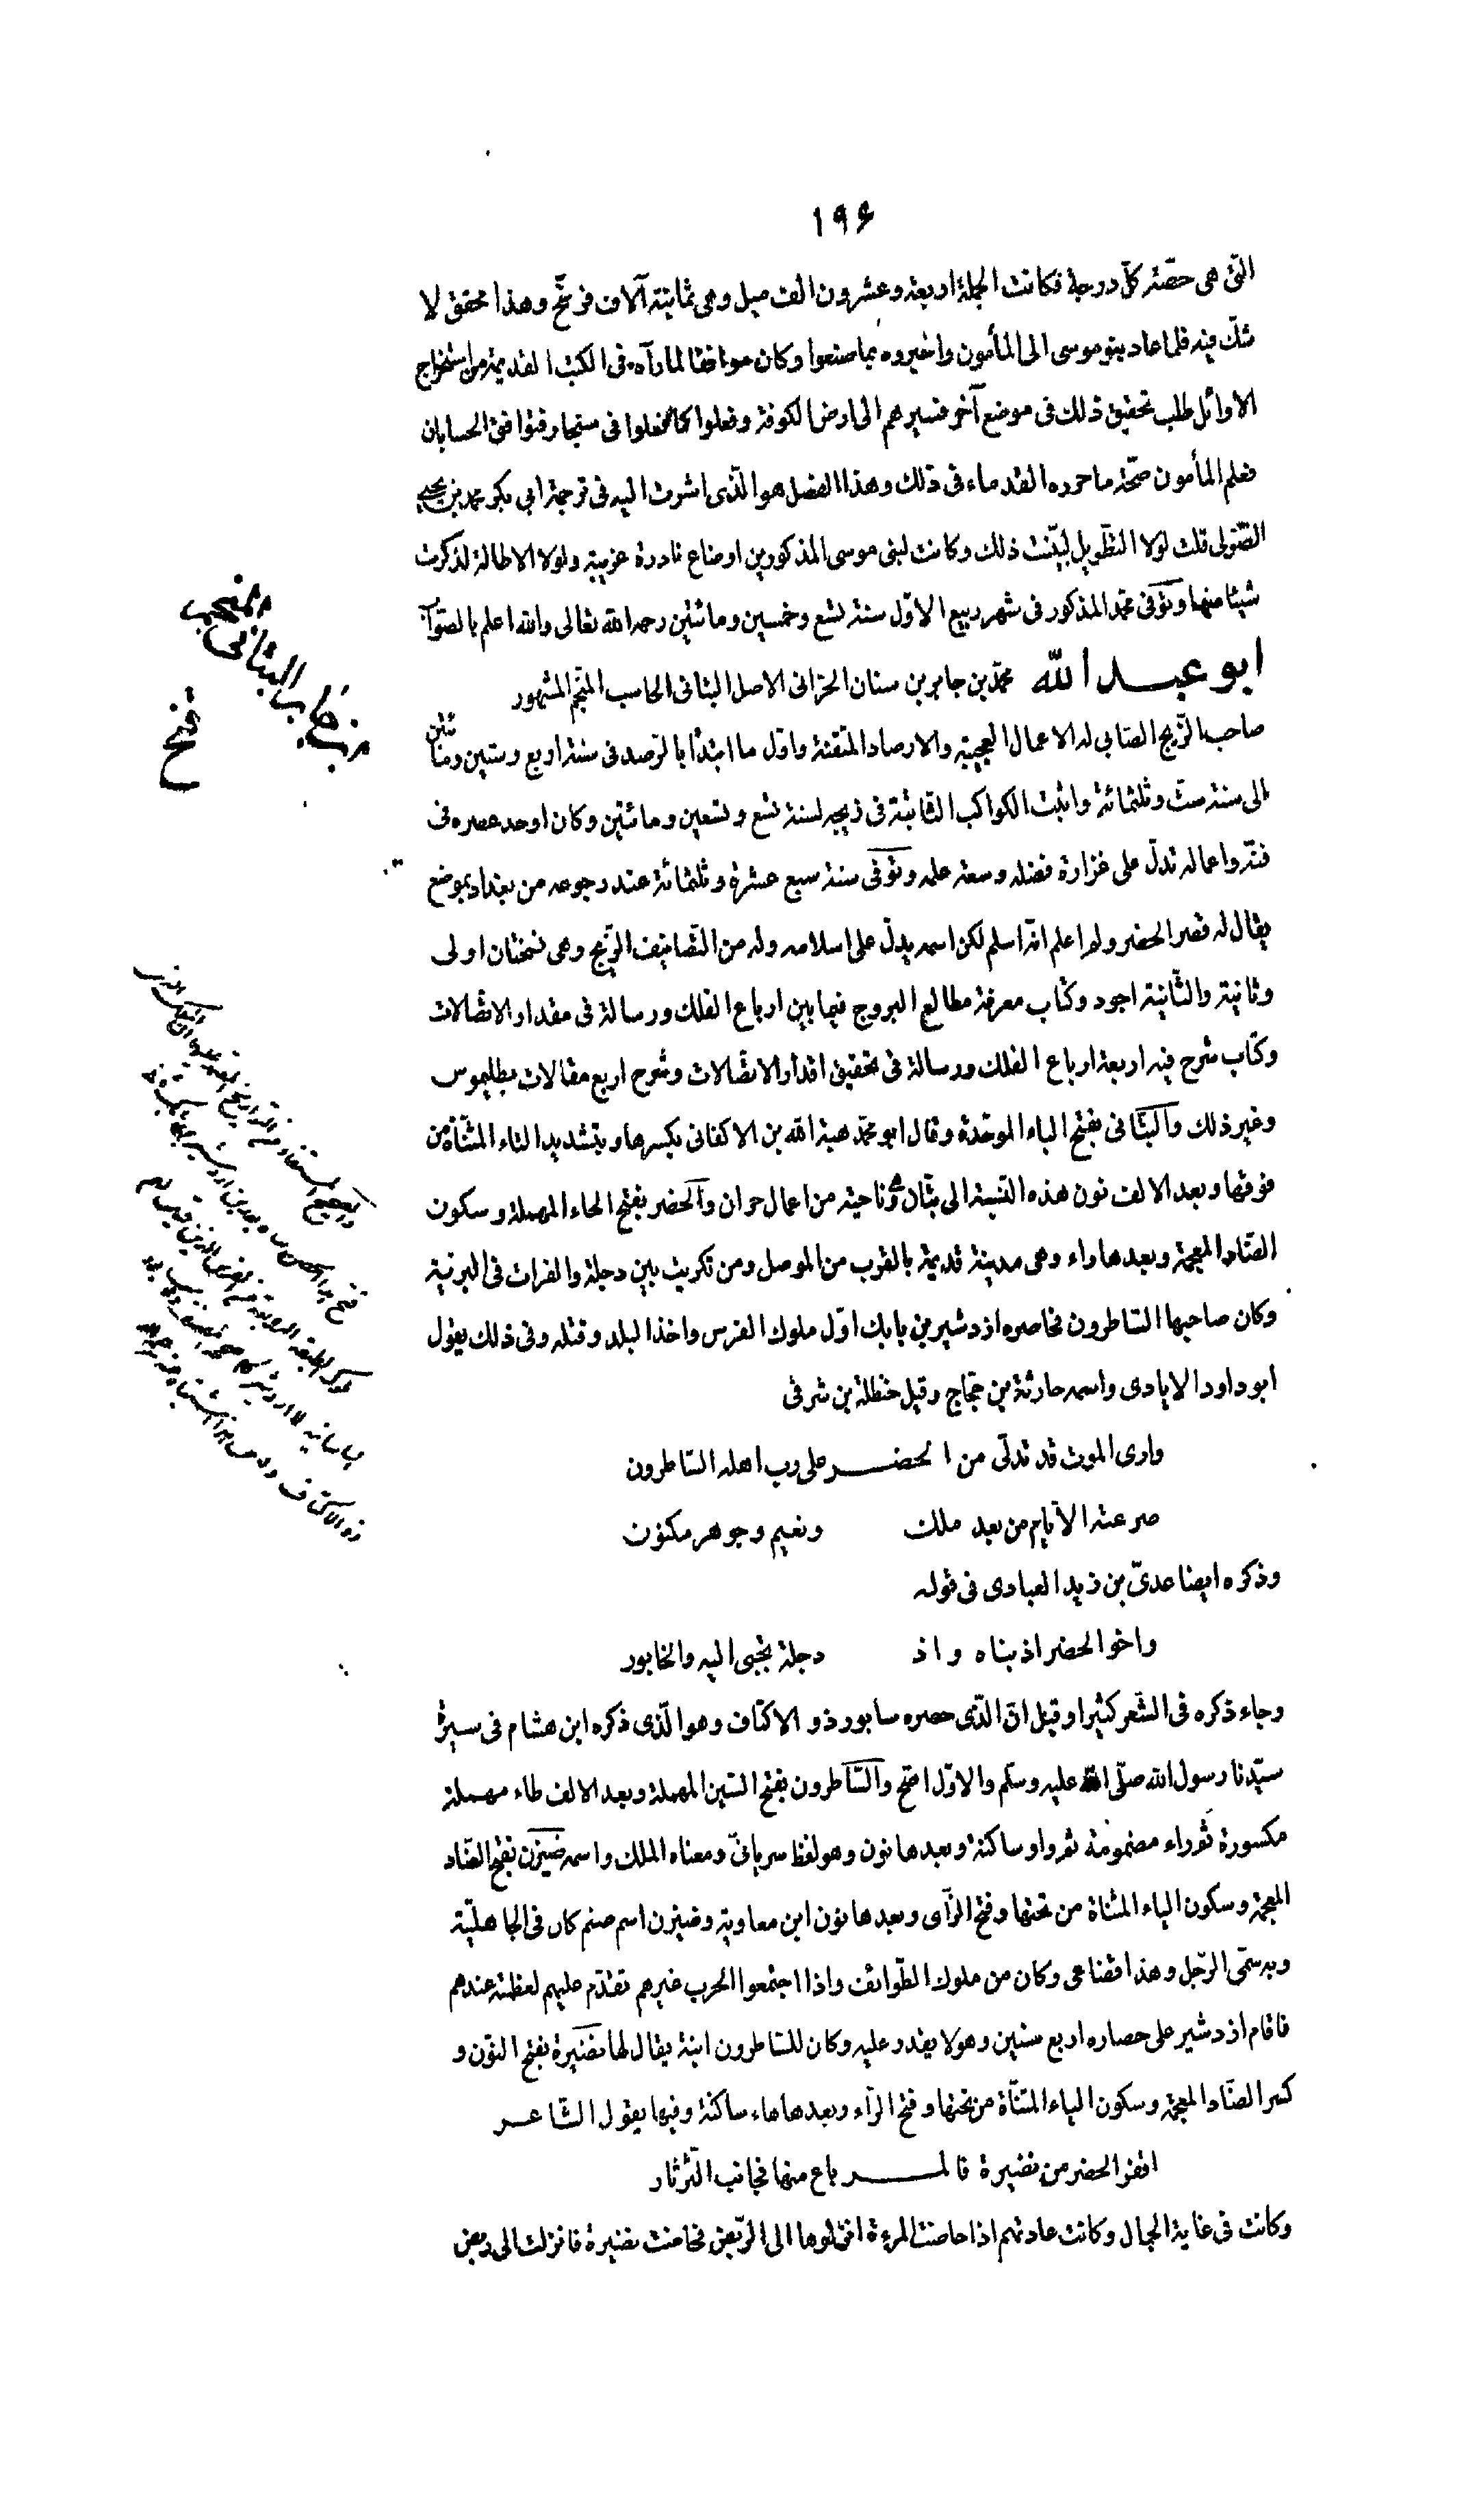 ١٩۶
التى هى حصّة كلّ درجة فكانت الجملة اربعة وعشرون الف ميل وهى ثمانية آلاف فرسخ وهذا محقق لا
شكّ فيه فلما عاد بنو موسى الى المأمون واخبروه بما صنعوا وكان موافقا لما رآه فى الكتب القديمة من استخراج
الاوائل طلب تحقيق ذلك فى موضع آخر فسيرهم الى ارض الكوفة وفعلوا كما فعلوا فى سنجار فتوافق الحسابان
فعلم المأمون صحّة ما حرره القدماء فى ذلك وهذا الفصل هو الّذى اشرت اليه فى ترجمة ابى بكر محمد بن يحيى
الصّولى قلت لولا التطويل لبيّنت ذلك وكانت لبنى موسى المذكورين اوضاع نادرة غريبة ولولا الاطالة لذكرت
شيئا منها وتوفى محمّد المذكور فى شهر ربيع الاوّل سنة تسع وخمسين ومائتين رحمه الله تعالى والله اعلم بالصّواب
ابو عبد الله محمّد بن جابر بن سنان الحرّانى الاصل البتانى الحاسب المنجّم المشهور
صاحب الزّيج الصّابى له الاعمال العجيبة والارصاد المتقنة واوّل ما ابتدأ بالرّصد فى سنة اربع وستين ومائتين
الى سنة ستّ وثلثمائة واثبت الكواكب الثّابتة فى زيجه لسنة تسع وتسعين ومائتين وكان اوحد عصره فى
فنّه واعماله تدلّ على غزارة فضله وسعة علمه وتوفّى سنة سبع عشرة وثلثمائة عند رجوعه من بغداد بموضع
يقال له قصر الحضر ولم اعلم انّه اسلم لكن اسمه يدلّ على اسلامه وله من التّصانيف الزّيج وهى نسختان اولى
وثانية والثّانية اجود وكتاب معرفة مطالع البروج فيما بين ارباع الفلك ورسالة فى مقدار الاتّصالات
وكتاب شرح فيه اربعة ارباع الفلك ورسالة فى تحقيق اقدار الاتّصالات وشرح اربع مقالات بطليموس
وغير ذلك والبتّانى بفتح الباء الموحّدة وقال ابو محمّد هبة الله بن الاكفانى بكسرها وبتشديد التاء المثنّاة من
فوقها وبعد الالف نون هذه النّسبة الى بتّان وهى ناحية من اعمال حران والحضر بفتح الحاء المهملة وسكون
الضّاد المعجمة وبعدها راء وهى مدينة قديمة بالقرب من الموصل ومن تكريت بين دجلة والفرات فى البرّيّة
وكان صاحبها السّاطرون فحاصره اردشير بن بابك اوّل ملوك الفرس واخذ البلد وقتله وفى ذلك يقول
ابو داود الايادى واسمه حارثة بن حجّاج وقيل حنظلة بن شرقى
وارى الموت قد تدلّى من الحضـر على رب اهله السّاطرون
صرعته الايّام من بعد ملك ونعيم وجوهر مكنون
وذكره ايضا عدىّ بن زيد العبادى فى قوله
واخو الحضر اذ بناه واذ دجلة تجبى اليه والخابور
وجاء ذكره فى الشّعر كثيرا وقيل انّ الّذى حصره سابور ذو الاكتاف وهو الّذى ذكره ابن هشام فى سيرة
سيّدنا رسول الله صلّى الله عليه وسلّم والاوّل اصحّ والسّاطرون بفتح السّين المهملة وبعد الالف طاء مهملة
مكسورة ثم راء مضمومة ثم واو ساكنة وبعدها نون وهو لفظ سريانىّ ومعناه الملك واسمه ضيزن بفتح الضّاد
المعجمة وسكون الياء المثناة من تحتها وفتح الزّاى وبعدها نون ابن معاوية وضيزن اسم صنم كان فى الجاهليّة
وبه سمّى الرّجل وهذا قضاعى وكان من ملوك الطّوائف واذا اجتمعوا لحرب غيرهم تقدّم عليهم لعظمته عندهم
فاقام اردشير على حصاره اربع سنين وهو لا يقدر عليه وكان للسّاطرون ابنة يقال لها نضيرة بفتح النّون و
كسر الضّاد المعجمة وسكون الياء المثنّاة من تحتها وفتح الرّاء وبعدها هاء ساكنة وفيها يقول الشّاعـر
اقفر الحضر من نضيرة فالمـرباع منها فجانب الثّرثار
وكانت فى غاية الجمال وكانت عادتهم اذا حاضت المرءة انزلوها الى الرّبض فحاضت نضيرة فانزلت الى ربض
المنجم
البتانى